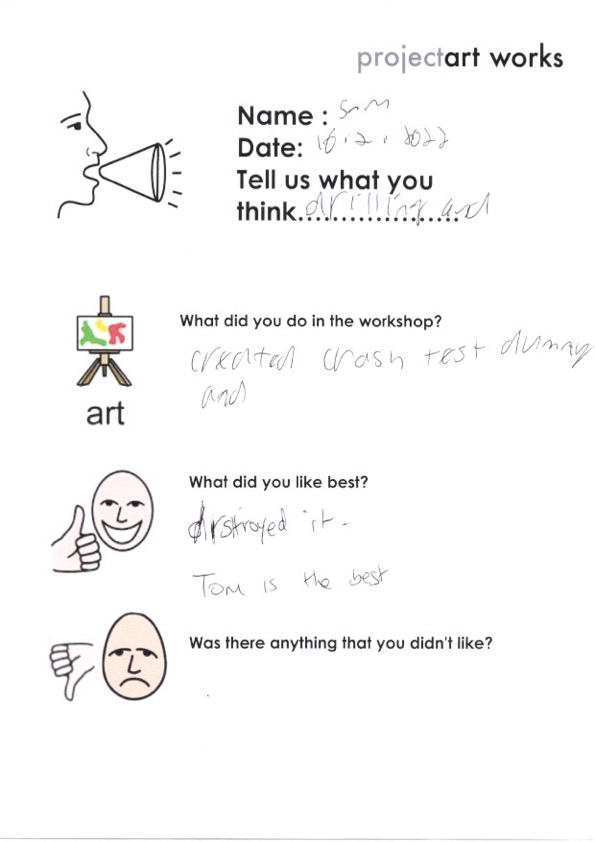 projectart works
Name : Sam
Date: 16.2.2022
Tell us what you
think.....drilling and
What did you do in the workshop?
created crash test dummy
and
art
What did you like best?
destroyed it.
Tom is the best
Was there anything that you didn't like?